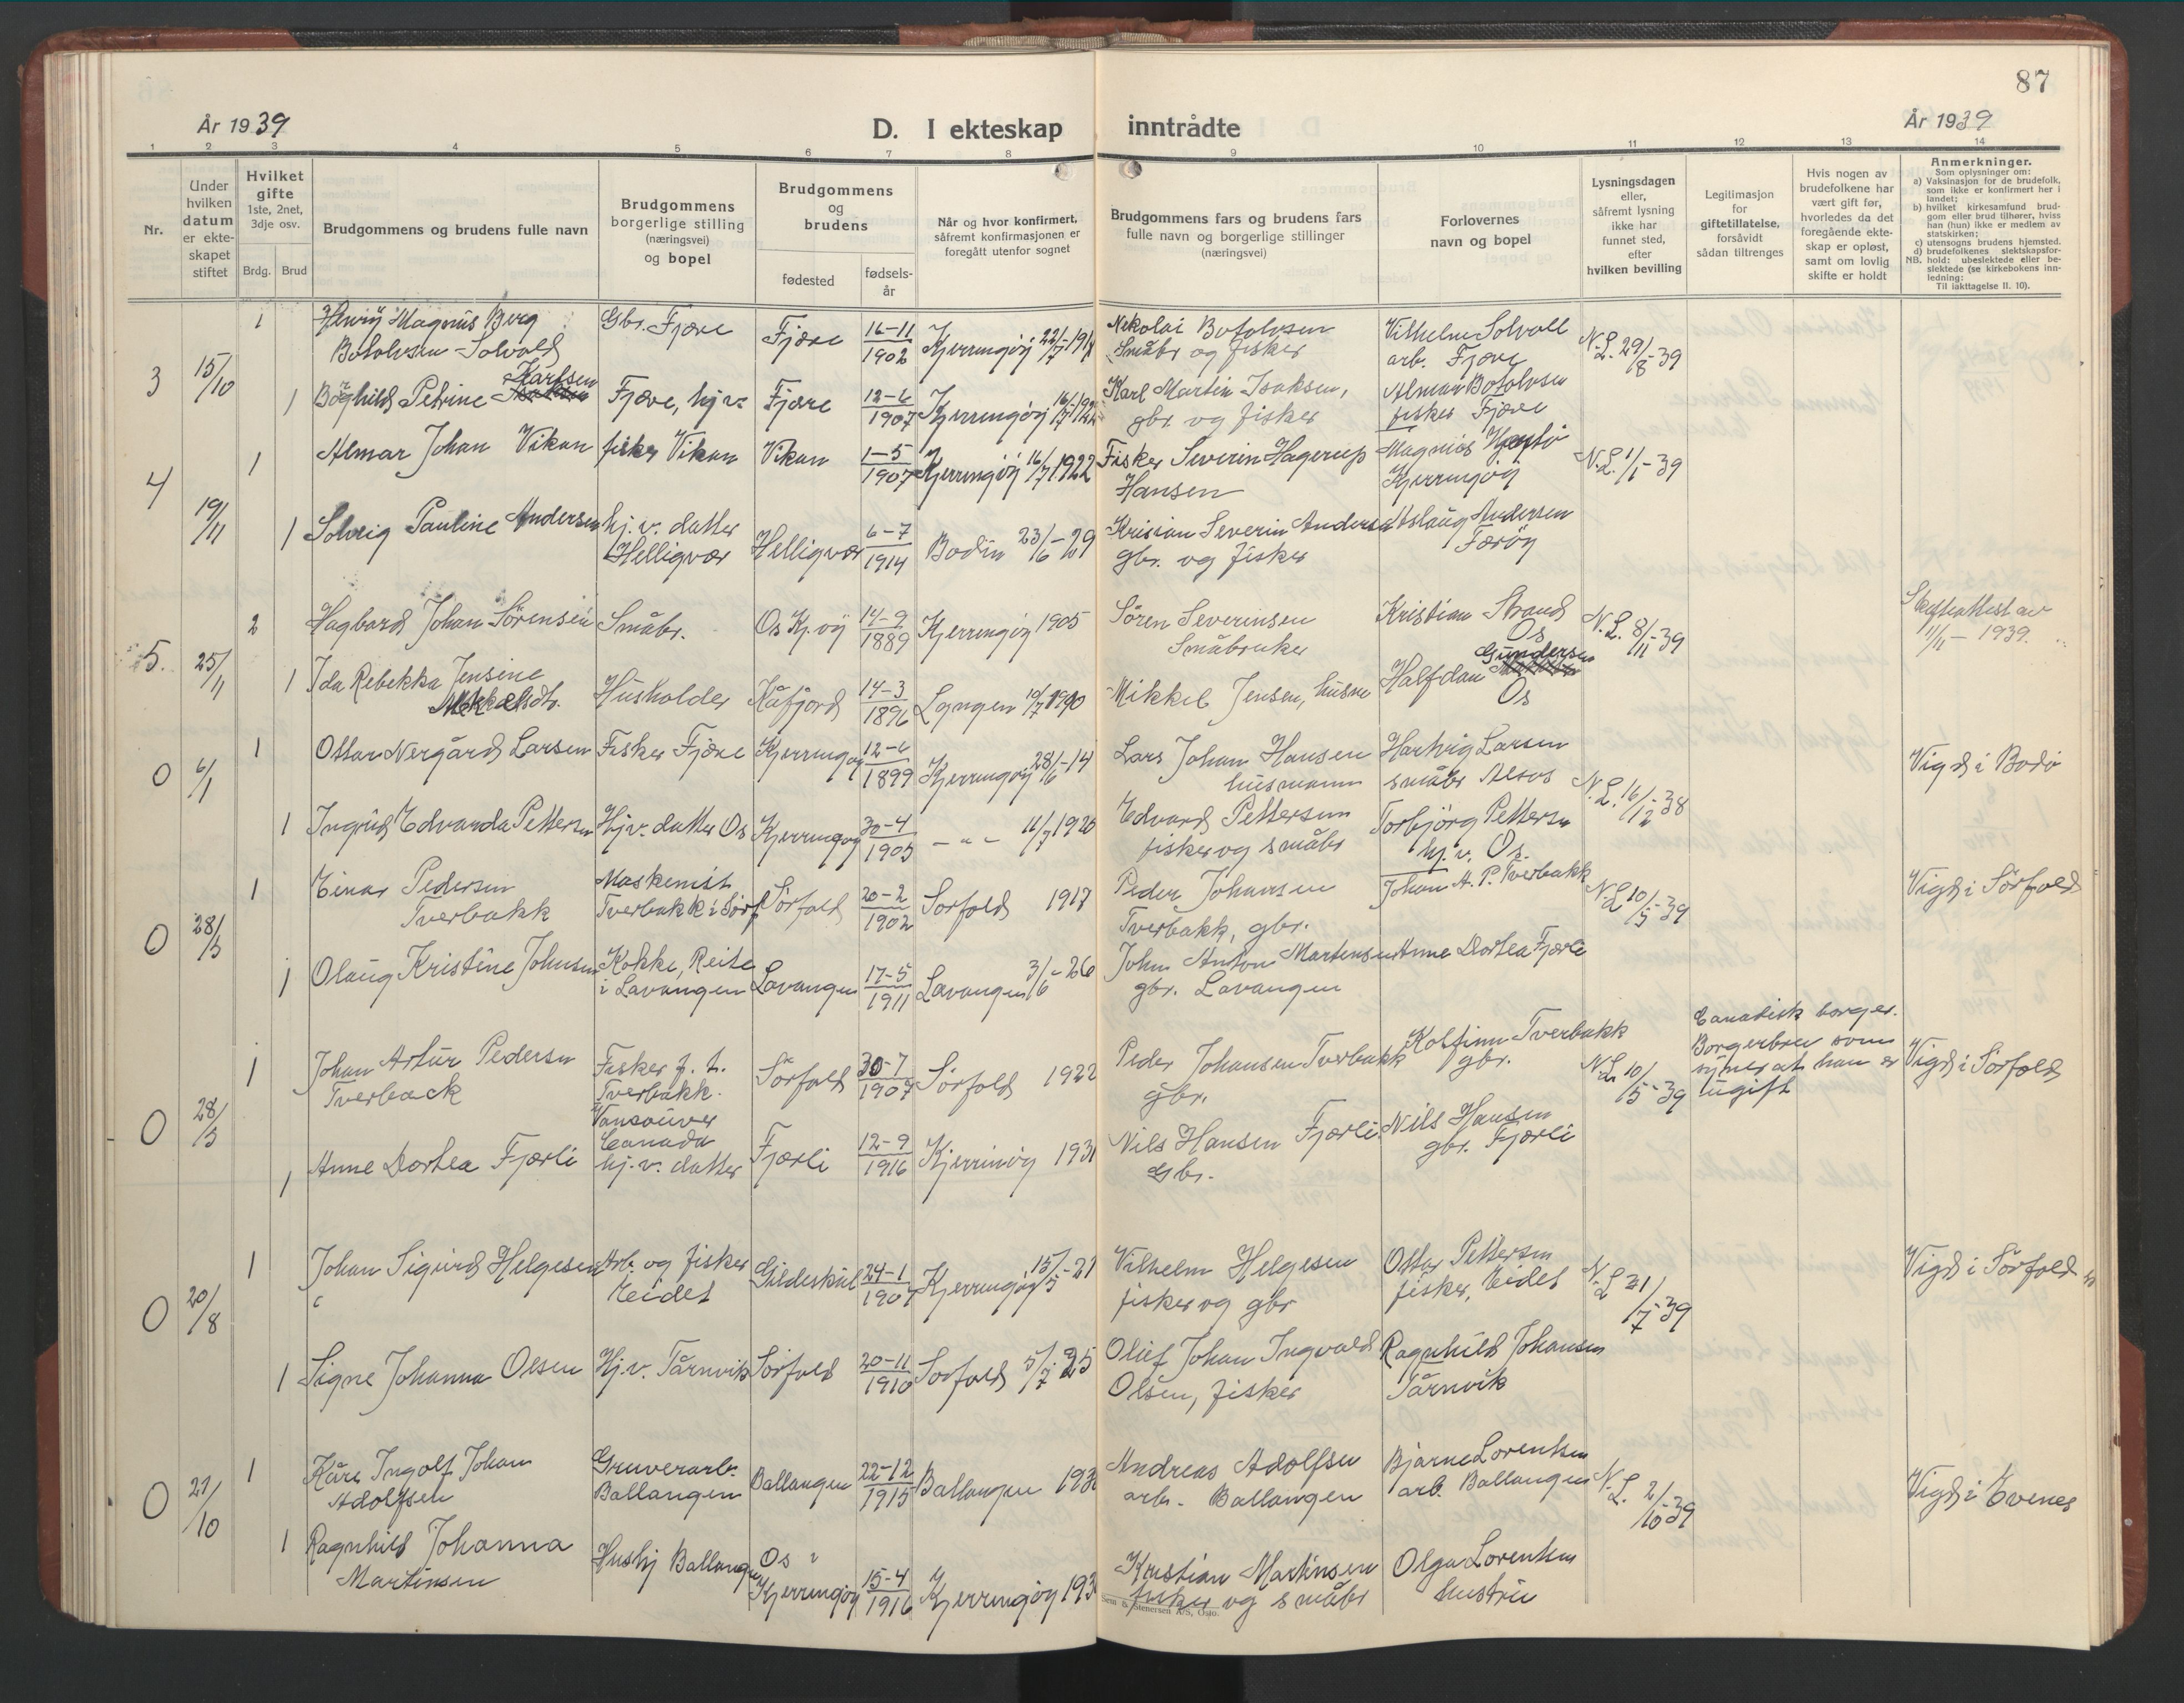 87
År 1939
D. I ekteskap inntrådte
År 1939
1 2 3 4 5 6 7 8 9 10 11 12 13 14
Nr.
Under hvilken datum er ekteskapet stiftet
Hvilket gifte 1ste, 2net, 3dje osv.
Brdg. Brud
Brudgommens og brudens fulle navn
Brudgommens borgerlige stilling (næringsvei) og bopel
Brudgommens og brudens
fødested
fødselsår
Når og hvor konfirmert, såfremt konfirmasjonen er foregått utenfor sognet
Brudgommens fars og brudens fars fulle navn og borgerlige stillinger (næringsvei)
Forlovernes navn og bopel
Lysningsdagen eller, såfremt lysning ikke har funnet sted, efter hvilken bevilling
Legitimasjon for giftetillatelse, forsåvidt sådan tiltrenges
Hvis nogen av brudefolkene har vært gift før, hvorledes da det foregående ekteskap er opløst, samt om lovlig skifte er holdt
Anmerkninger.
Som oplysninger om:
a) Vaksinasjon for de brudefolk, som ikke er konfirmert her i landet;
b) hvilket kirkesamfund brudgom eller brud tilhører, hviss han (hun) ikke er medlem av statskirken;
c) utensogns brudens hjemsted.
d) brudefolkenes slektskapsforhold: ubeslektede eller beslektede (se kirkebokens innledning:
NB.
Til iakttagelse II. 10).
3 15/10 1 Henry Magnus Berg Botolvsen-Solvold Gbr. Fjære Fjære 16-11 1902 Kjerringøy 22/7-191 Nikolai Botolvsen Småbr og fisker Vilhelm Solvoll arb. Fjære N.L. 29/8-39
1 Borghild Petrine Karlsen Fjære, hj.v. Fjære 12-6 1907 Kjerringøy 16/7-1922 Karl Martin Isaksen, gbr. og fisker Almar Botolvsen fisker Fjære
4 19/11 1 Almar Johan Vikan fisker Vikan Vikan 1-5 1907 Kjerringøy 16/7 1922 Fisker Severin Hagerup Hansen Magnus Kjerringøy N.L. 1/1-39
1 Solveig Pauline Andersen hj. v. datter Helligvær Helligvær 6-7 1914 Bodin 23/6-29 Krisian Severin Andersen gbr. og fisker Aslaug Andersen Færöy
5. 25/11 2 Hagbard Johan Sörensen Småbr. Os Kj.öy 14-9 1889 Kjerringöy 1905 Sören Severinsen Småbruker Kristian Strand Os N.L. 8/11-39 Skifteattest av 11/11-1939.
1 Ida Rebekka Jensine Mikkelsdtr. Husholder Kåfjord 14-3 1896 Lyngen 10/7 1910 Mikkel Jensen, husm Halfdan Gundersen Os
0 6/1 1 Ottar Nergård Larsen Fisker Fjære Kjerringøy 12-6 1899 Kjerringøy 28/6-14 Lars Johan Hansen husmann Hartvig Larsen småbr Alsos N.L. 16/12-38 Vigd i Bodö
1 Ingrid Edvarda Pettersen Hj.v. datter Os Kjerringøy 30-4 1905 - " - 11/7 1920 Edvard Pettersen fisker og småbr Torbjörg Pettersen hj. v. Os.
0 28/5 1 Einar Pedersen Tverbakk Maskinist Tverbakk i Sörf. Sörfold 20-2 1902 Sörfold 1917 Peder Johansen Tverbakk, gbr. Johan A. P. Tverbakk N.L. 10/5-39 Vigd i Sörfold
1 Olaug Kristine Johnsen Kokke, Reite i Lavangen Lavangen 17-5 1911 Lavangen 3/6-26 John Anton Martensen gbr. Lavangen Anne Dortea Fjærli
0 28/5 1 Johan Artur Pedersen Tverback Fisker f. t. Tverbakk. Vancouver Canada Sörfold 30-7 1907 Sörfold 1922 Peder Johansen Tverbakk gbr. Kolfinn Tverbakk gbr. N.L. 10/5-39 Canadisk borger. Borgerbrev som syner at han er ugift Vigd i Sörfold
1 Anne Dortea Fjærli hj. v. datter Fjærli 12-9 1916 Kjerringöy 1931 Nils Hansen Fjærli Gbr. Nils Hansen gbr. Fjærli
0 20/8 1 Johan Sigurd Helgesen Arb. og fisker Eidet Gildeskål 24-1 1907 Kjerringøy 15/5-21 Vilhelm Helgesen fisker og gbr Ottar Pettersen fisker, Eidet N.L. 31/7-39 Vigd i Sörfold
1 Signe Johanna Olsen Hj.v. Tårnvik Sörfold 20-11 1910 Sörfold 5/7-25 Oluf Johan Ingvald Olsen, fisker Ragnhild Johansen Tårnvik
0 21/10 1 Kåre Ingolf Johan Adolfsen Gruvearb. Ballangen Ballangen 22-12 1915 Ballangen 193 Andreas Adolfsen arb. Ballangen Bjarne Lorentsen arb. Ballangen N.L. 2/10-39 Vigd i Evenes
1 Ragnhild Johanna Martinsen Hushj Ballangen Os i Kjerringøy 15-4 1916 Kjerringøy 193 Kristian Martinsen fisker og småbr Olga Lorentsen hustru
Sem & Stenersen A/S, Oslo.